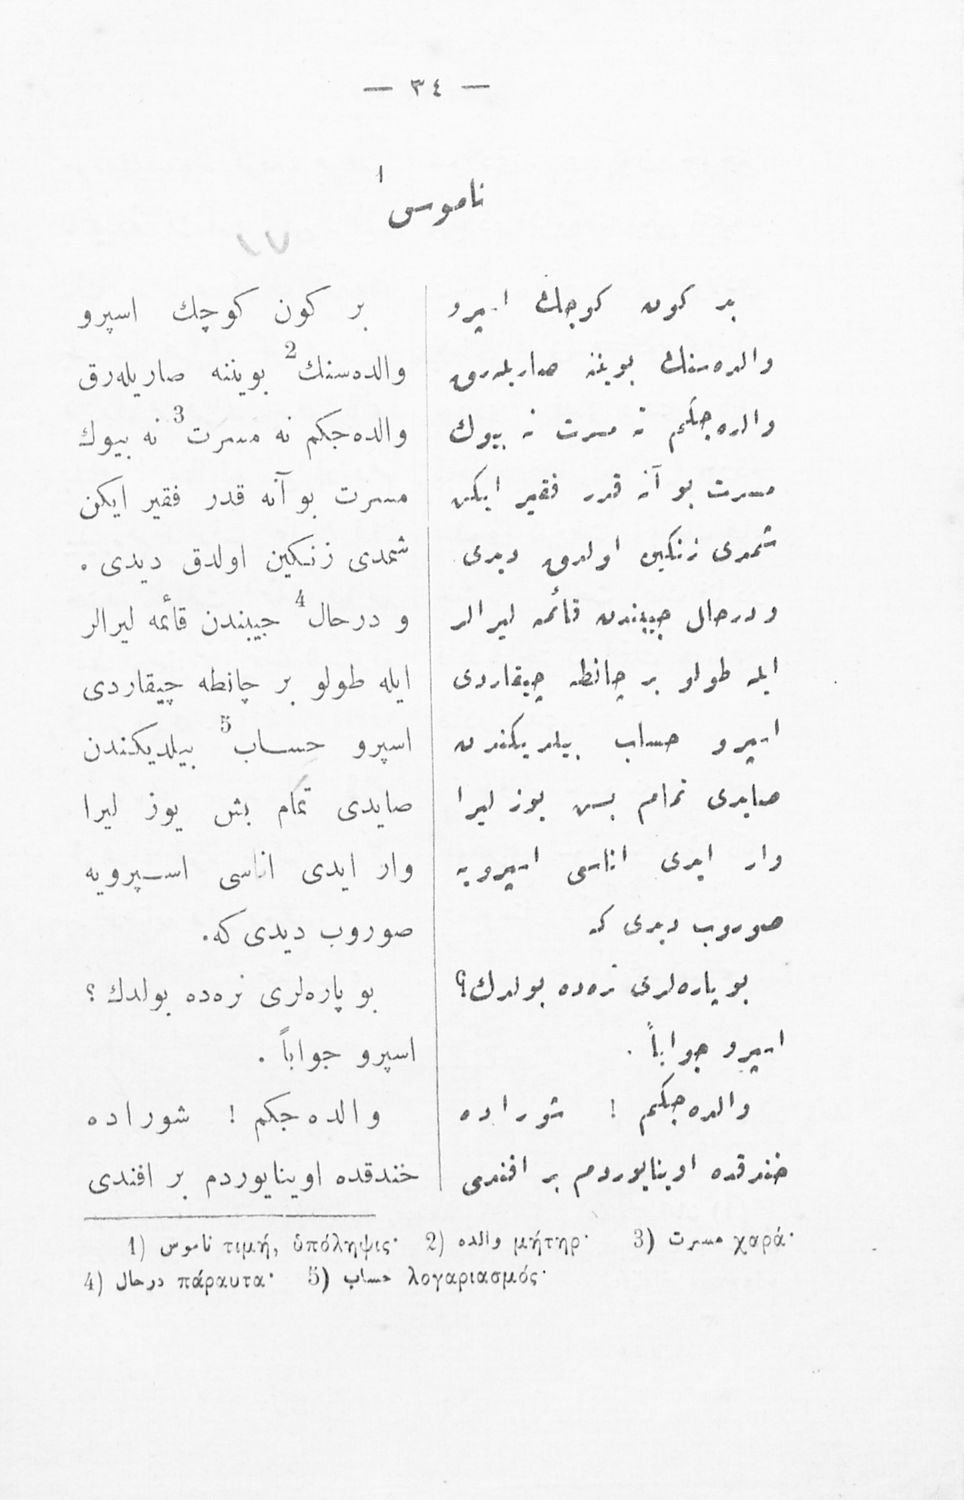 — ٣٤ —
ناموس 1
بر كون كوچك اسپرو
والده‌سنك بويننه صاريله‌رق
والده‌جكم نه مسرت نه بيوك
مسرت بو آنه قدر فقير ايكن
شمدى زنكين اولدق ديدى
و درحال جيبندن قائمه ليرالر
ايله طولو بر چانطه چيقاردى
اسپرو حساب بيلديكندن
صايدى تمام بش يوز ليرا
وار ايدى اناسى اسپرويه
صوروب ديدى كه
بو پاره‌لرى نره‌ده بولدك؟
اسپرو جواباً .
والده‌جكم ! شوراده
خندقده اوينايوردم بر افندى
بر كون كوچك اسپرو
والده‌سنك2 بويننه صاريله‌رق
والده‌جكم نه مسرت3 نه بيوك
مسرت بو آنه قدر فقير ايكن
شمدى زنكين اولدق ديدى .
و درحال4 جيبندن قائمه ليرالر
ايله طولو بر چانطه چيقاردى
اسپرو حساب5 بيلديكندن
صايدى تمام بش يوز ليرا
وار ايدى اناسى اسپرويه
صوروب ديدى كه.
بو پاره‌لرى نره‌ده بولدك ؟
اسپرو جواباً .
والده‌جكم ! شوراده
خندقده اوينايوردم بر افندى
1) ناموس τιμή, ὑπόληψις· 2) والده μήτηρ· 3) مسرت χαρά·
4) درحال πάραυτα· 5) حساب λογαριασμός·